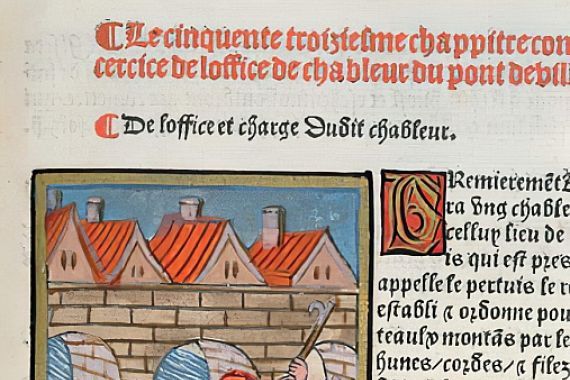 Le cinquente troiziesme chappitre con
cercice de loffice de chableur du pont de vill
De loffice et charge dudit chableur.
PRemieremēt
ra vng chable
celluy lieu de
is qui est pres
appelle le pertuis le r
establi ⁊ ordonne pou
teaulx montās par le
hunes/cordes/⁊ filez